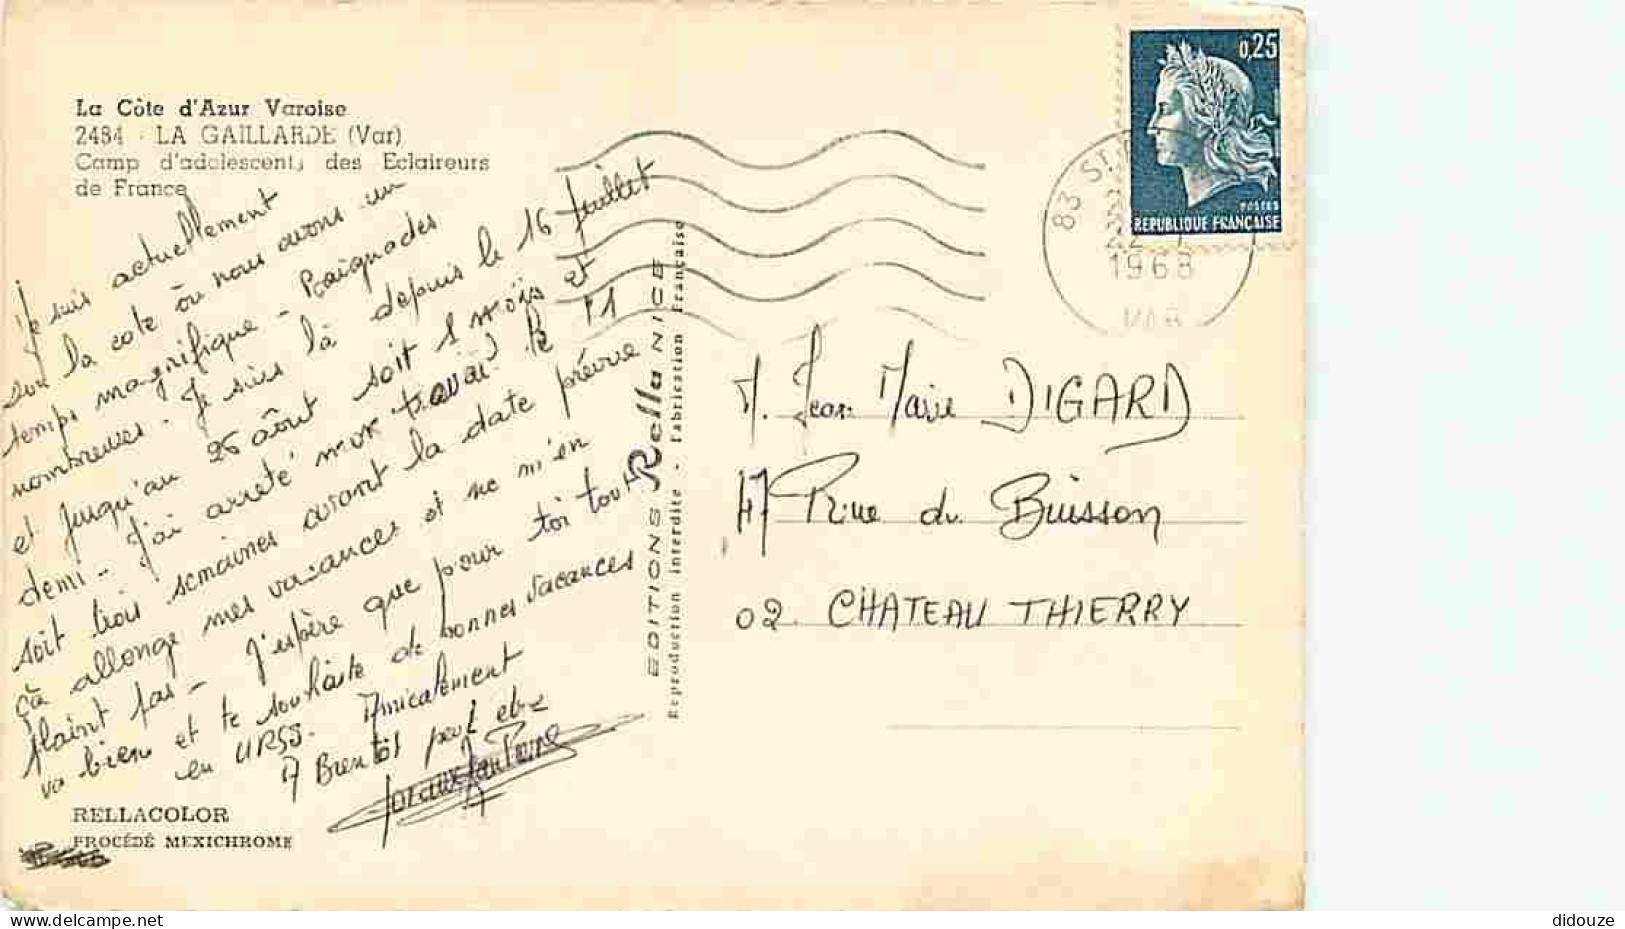 La Côte d'Azur Varoise
2484 - LA GAILLARDE (Var)
Camp d'adolescents des Eclaireurs
de France
Je suis actuellement
sur la cote ou nous avons un
temps magnifique - Baignades
nombreuses - Je suis là depuis le 16 juillet
et jusqu'au 25 août soit 1 mois et
demi - J'ai arreté mon travail le 11
soit trois semaines avant la date prévue
çà allonge mes vacances et ne m'en
plaint pas - J'espère que pour toi tout
va bien et te souhaite de bonnes vacances
en URSS. Amicalement
A Bientôt peut etre
RELLACOLOR
PROCÉDÉ MEXICHROME
EDITIONS Rella NICE
Reproduction interdite - Fabrication Française
0,25
POSTES
REPUBLIQUE FRANÇAISE
83 ST
1968
VAR
M. Jean Marie DIGARD
47 Rue du Buisson
02 CHATEAU THIERRY
didouze